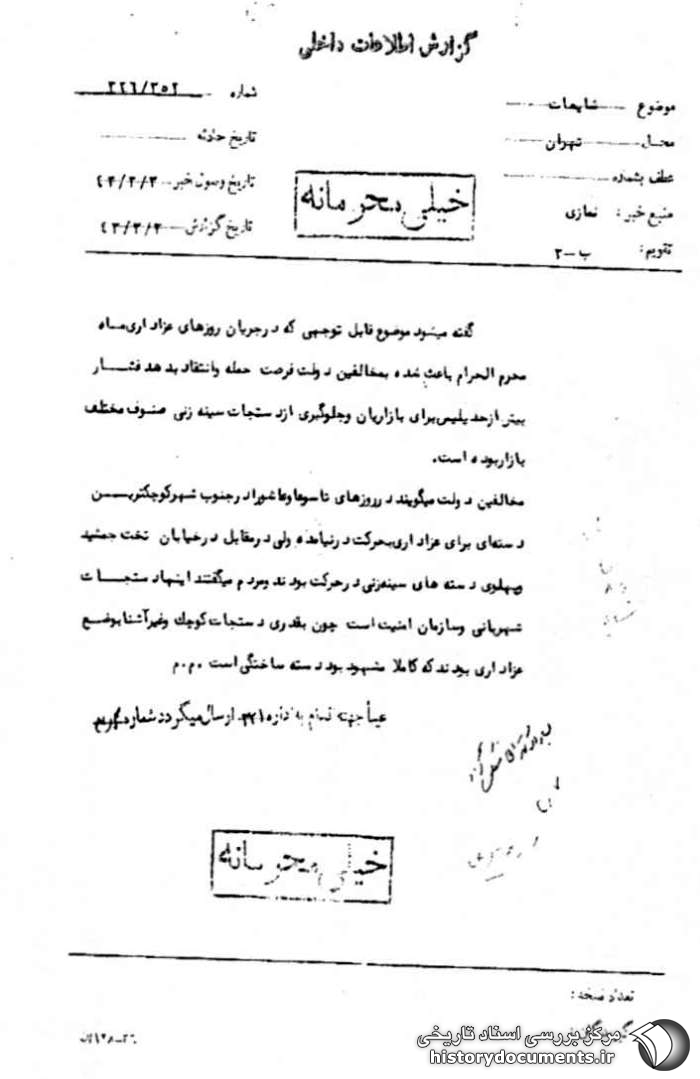 گزارش اطلاعات داخلی
موضوع شایعات
محل تهران
عطف بشماره
منبع خبر : نمازی
تقویم : ب-۳
شماره ۳۲۶/۳۵۲
تاریخ حادثه
تاریخ وصول خبر ۴۳/۳/۳
تاریخ گزارش ۴۳/۳/۳
خیلی محرمانه
گفته میشود موضوع قابل توجهی که در جریان روزهای عزاداری ماه
محرم الحرام باعث شده بمخالفین دولت فرصت حمله وانتقاد بدهد فشار
بیش از حد پلیس برای بازاریان وجلوگیری از دستجات سینه زنی صنوف مختلف
بازار بوده است.
مخالفین دولت میگویند در روزهای تاسوعا وعاشورا در جنوب شهر کوچکترین
دسته‌ای برای عزاداری بحرکت در نیامده ولی در مقابل در خیابان تخت جمشید
وپهلوی دسته های سینه‌زنی در حرکت بودند ومردم میگفتند اینها دستجات
شهربانی وسازمان امنیت است چون بقدری دستجات کوچك وغیر آشنا بوضع
عزاداری بودند که کاملا مشهود بود دسته ساختگی است م.م
عیناً جهته اداره ۳۲۱ ارسال میگردد شماره
خیلی محرمانه
تعداد نسخه :
مرکز بررسی اسناد تاریخی
historydocuments.ir